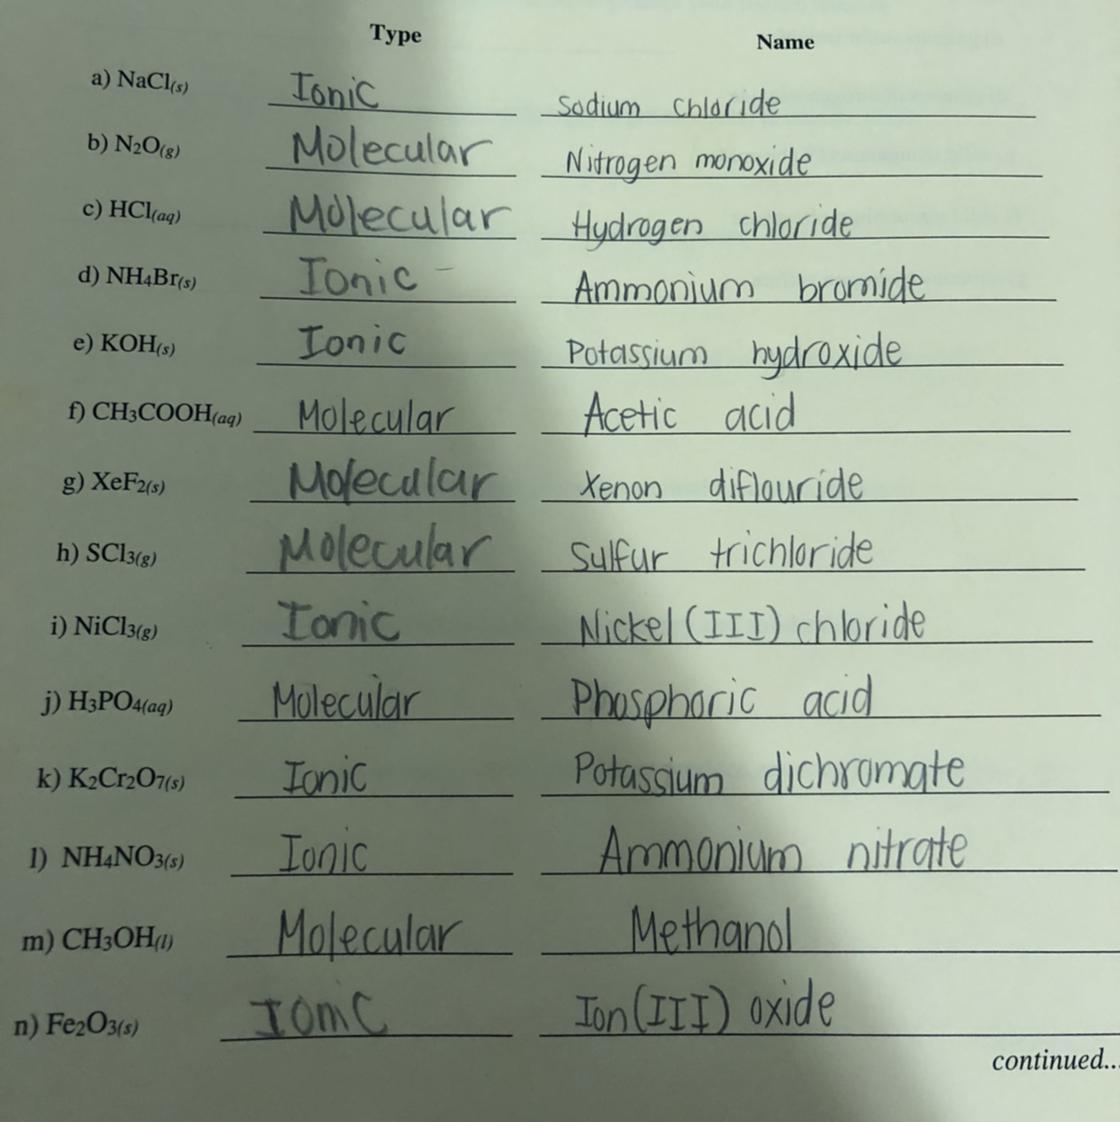 Type Name
a) NaCl(s) Ionic Sodium chloride
b) N2O(g) Molecular Nitrogen monoxide
c) HCl(aq) Molecular Hydrogen chloride
d) NH4Br(s) Ionic Ammonium bromide
e) KOH(s) Ionic Potassium hydroxide
f) CH3COOH(aq) Molecular Acetic acid
g) XeF2(s) Molecular Xenon diflouride
h) SCl3(g) Molecular Sulfur trichloride
i) NiCl3(g) Ionic Nickel (III) chloride
j) H3PO4(aq) Molecular Phosphoric acid
k) K2Cr2O7(s) Ionic Potassium dichromate
l) NH4NO3(s) Ionic Ammonium nitrate
m) CH3OH(l) Molecular Methanol
n) Fe2O3(s) Ionic Ion (III) oxide
continued...